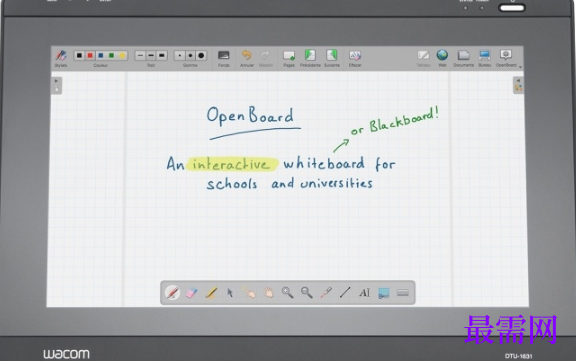 Couleur Trait Gomme Fonds Annuler Pages Précédente Suivante Effacer Web Documents Bureau OpenBoard
OpenBoard
or Blackboard!
An interactive whiteboard for
schools and universities
AI
最需网
wacom
DTU-1631